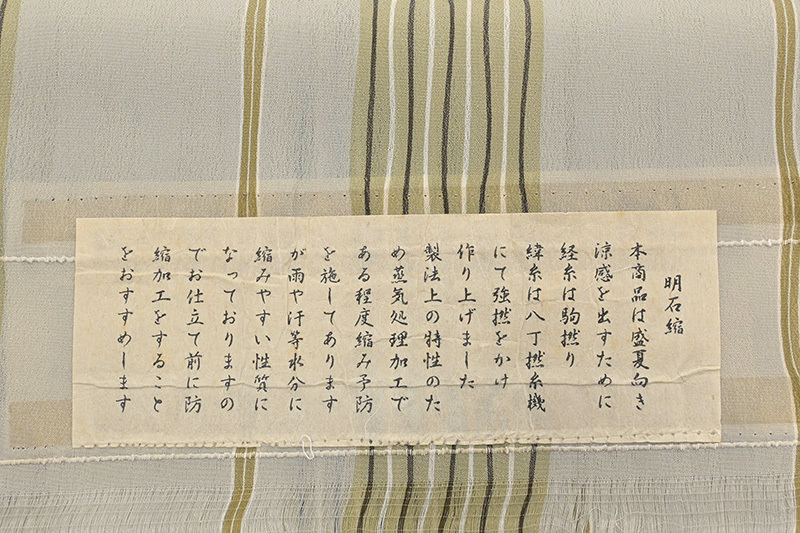 明石縮
本商品は盛夏向き
涼感を出すために
経糸は駒撚り
緯糸は八丁撚糸機
にて強撚をかけ
作り上げました
製法上の特性のた
め蒸気処理加工で
ある程度縮み予防
を施してあります
が雨や汗等水分に
縮みやすい性質に
なっておりますの
でお仕立て前に防
縮加工をすること
をおすすめします